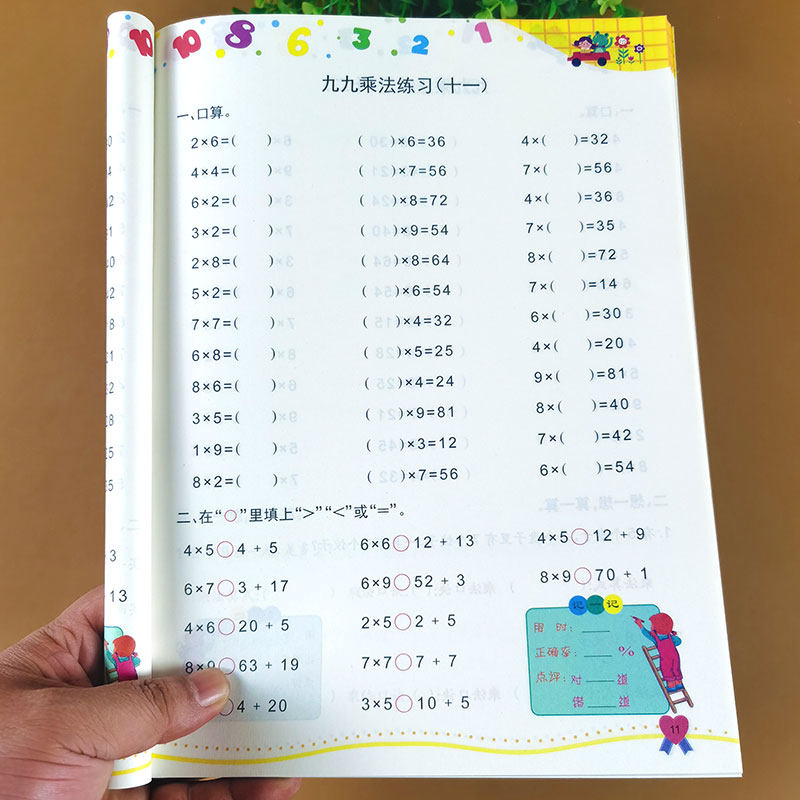 10 10 8 6 3 2 1
九九乘法练习(十一)
一、口算。
2×6=( ) ( )×6=36 4×( )=32
4×4=( ) ( )×7=56 7×( )=56
6×2=( ) ( )×8=72 4×( )=36
3×2=( ) ( )×9=54 7×( )=35
2×8=( ) ( )×8=64 8×( )=72
5×2=( ) ( )×6=54 7×( )=14
7×7=( ) ( )×4=32 6×( )=30
6×8=( ) ( )×5=25 4×( )=20
8×6=( ) ( )×4=24 9×( )=81
3×5=( ) ( )×9=81 8×( )=40
1×9=( ) ( )×3=12 7×( )=42
8×2=( ) ( )×7=56 6×( )=54
二、在“○”里填上“>”“<”或“=”。
4×5○4 + 5 6×6○12 + 13 4×5○12 + 9
6×7○3 + 17 6×9○52 + 3 8×9○70 + 1
4×6○20 + 5 2×5○2 + 5
8×9○63 + 19 7×7○7 + 7
○4 + 20 3×5○10 + 5
记一记
用时：____
正确率：____%
点评：对____道
错____道
11